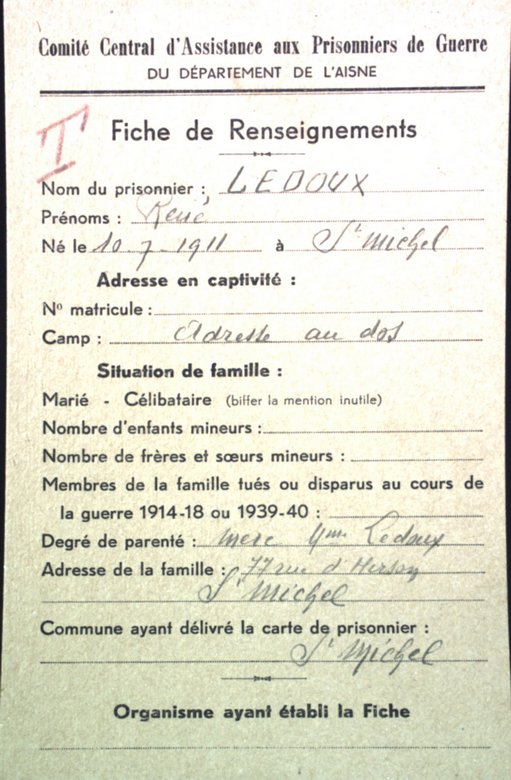 Comité Central d'Assistance aux Prisonniers de Guerre
DU DÉPARTEMENT DE L'AISNE
T
Fiche de Renseignements
Nom du prisonnier : LEDOUX
Prénoms : René
Né le 10-7-1911 à St Michel
Adresse en captivité :
No matricule :
Camp : Adresse au dos
Situation de famille :
Marié - Célibataire (biffer la mention inutile)
Nombre d'enfants mineurs :
Nombre de frères et sœurs mineurs :
Membres de la famille tués ou disparus au cours de
la guerre 1914-18 ou 1939-40 :
Degré de parenté : mere Mme Ledoux
Adresse de la famille : 77 rue d'Hirson
St Michel
Commune ayant délivré la carte de prisonnier :
St Michel
Organisme ayant établi la Fiche